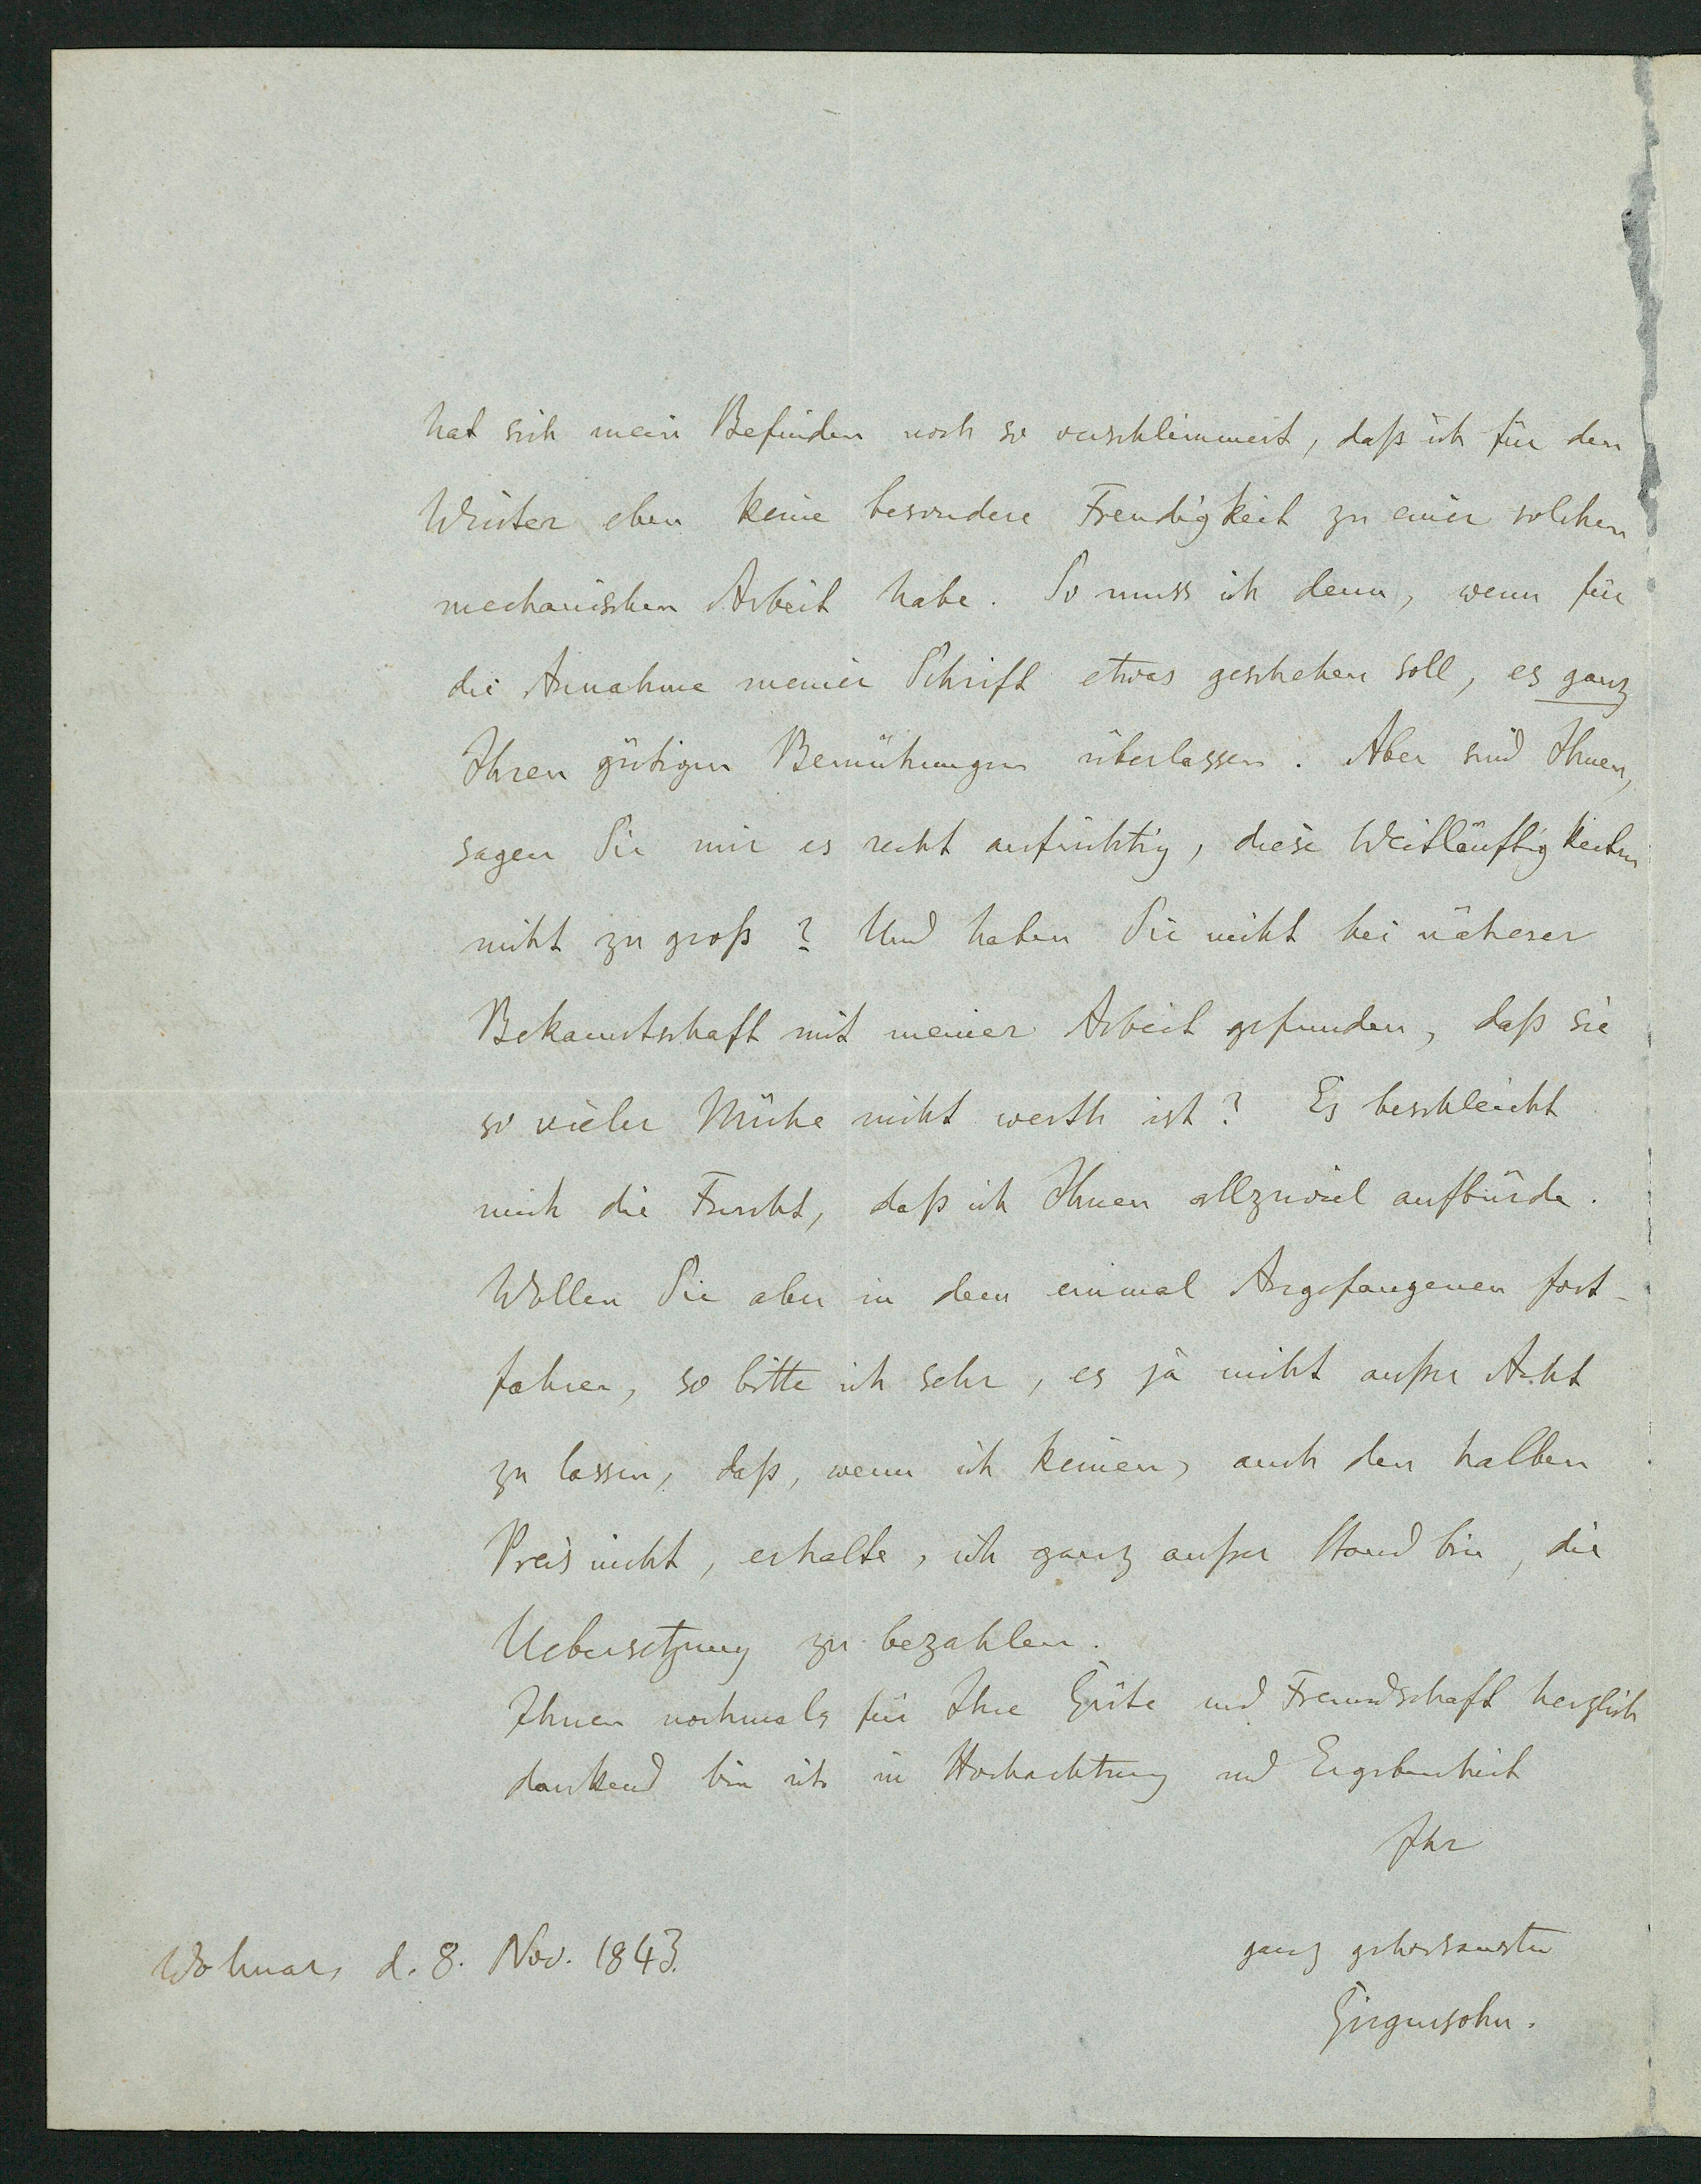 hat sich mein Befinden noch so verschlimmert, daß ich für den
Winter eben keine besondere Freudigkeit zu einer solchen
mechanischen Arbeit habe. So muss ich denn, wenn für
die Annahme meiner Schrift etwas geschehen soll, es ganz
Ihren gütigen Bemühungen überlassen. Aber sind Ihnen,
sagen Sie mir es recht aufrichtig, diese Weitläuftigkeiten
nicht zu groß? Und haben Sie nicht bei näherer
Bekanntschaft mit meiner Arbeit gefunden, daß sie
so vieler Mühe nicht werth ist? Es beschleicht
mich die Furcht, daß ich Ihnen allzuviel aufbürde.
Wollen Sie aber in dem einmal Angefangenen fort-
fahren, so bitte ich sehr, es ja nicht außer Acht
zu lassen, daß, wenn ich keinen, auch den halben
Preis nicht, erhalte, ich ganz außer Stand bin, die
Uebersetzung zu bezahlen.
Ihnen nochmals für Ihre Güte und Freundschaft herzlich
dankend bin ich in Hochachtung und Ergebenheit
Ihr
ganz gehorsamster
Wolmar, d. 8. Nov. 1843.
Girgensohn.